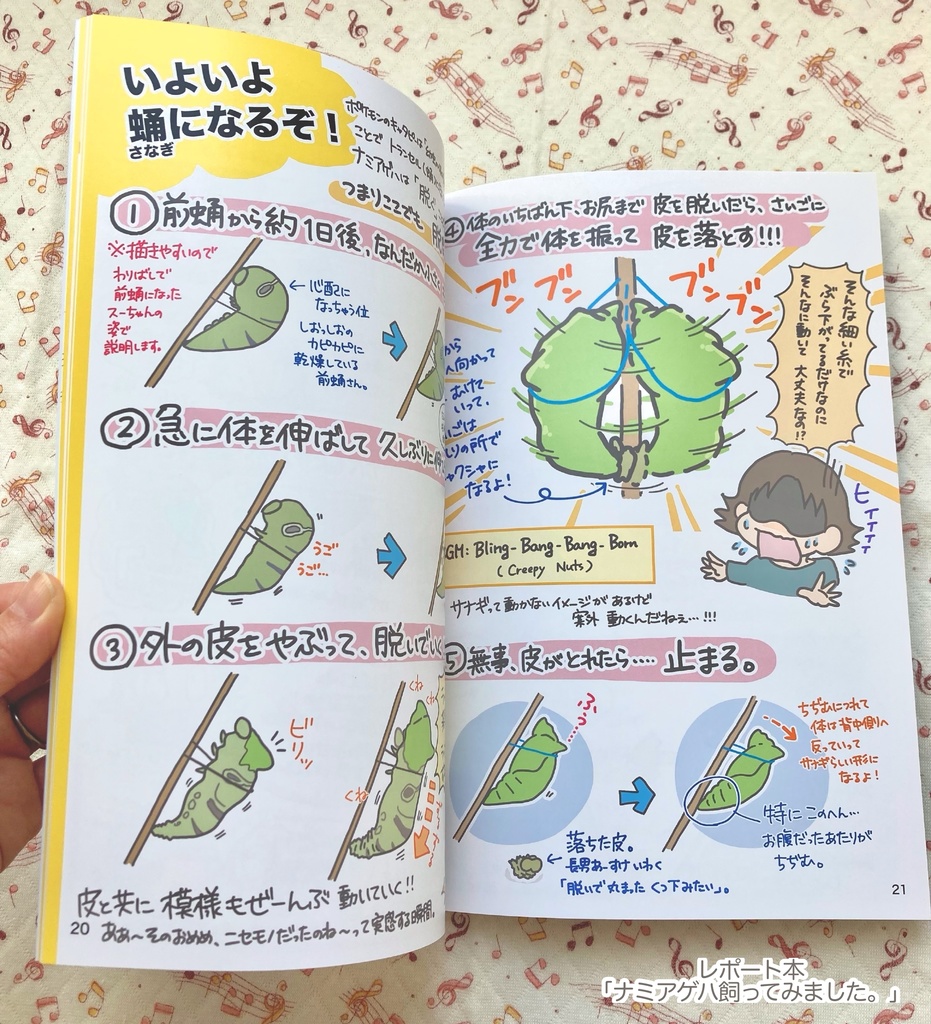 いよいよ
蛹になるぞ！
さなぎ
ポケモンのキャタピーは
ことで トランセル
ナミアゲハは「脱
つまりここでも 脱
①前蛹から約1日後、なんだか
※描きやすいので
わりばしで
前蛹になった
スーちゃんの
姿で
説明します。
←心配に
なっちゃう位
しおっしおの
カピカピに
乾燥している
前蛹さん。
②急に体を伸ばして 久しぶりに
うご
うご…
③外の皮をやぶって、脱いでいく
ビリッ
くね
くね
くね
皮と共に 模様もぜーんぶ 動いていく!!
ああ〜そのおめめ、ニセモノだったのね〜って実感する瞬間。
20
④体のいちばん下、お尻まで 皮を脱いだら、さいごに
全力で体を振って 皮を落とす!!!
ブンブン
ブンブン
そんな細い糸で
ぶら下がってるだけなのに
そんなに動いて 大丈夫なの!?
ヒィィィィ
から
へ向かって
むけて
いって、
ごは
しりの所で
クシャに
なるよ！
GM: Bling-Bang-Bang-Born
(Creepy Nuts)
サナギって動かないイメージがあるけど
案外 動くんだねぇ…!!!
⑤無事、皮がとれたら…… 止まる。
ふぅ…
ちぢむにつれて
体は背中側へ
反っていって
サナギらしい形に
なるよ！
特にこのへん…
お腹だったあたりが
ちぢむ。
落ちた皮。
←長男あーすけいわく
「脱いで丸まった くつ下みたい」。
21
レポート本
「ナミアゲハ飼ってみました。」